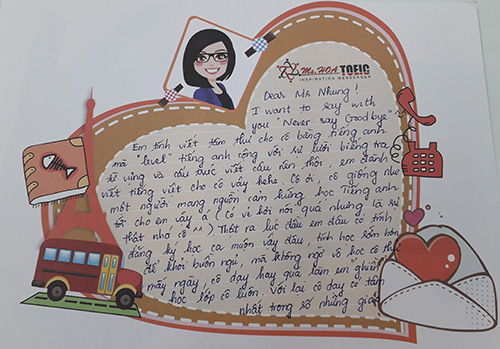 Ms. HOA TOEIC
INSPIRATION MESSENGER
Dear Ms Nhung!
I want to say with
you "Never say Goodbye"
Em tính viết tâm thư cho cô bằng tiếng anh
mà "level" tiếng anh cộng với sự lười biếng tra
từ vựng và cấu trúc viết câu nên thôi em đành
viết tiếng việt cho cô vậy hehe. Cô ơi, cô giống như
một người mang nguồn cảm hứng học Tiếng anh
tới cho em vậy á (có vẻ hơi nói quá nhưng là sự
thật nhá cô ^^) Thật ra lúc đầu em đâu có tính
đăng ký học ca muộn vậy đâu, tính học sớm hơn
để khỏi buồn ngủ, mà không ngờ vô học cô thế
mấy ngày, cô dạy hay quá làm em ghiền
học lớp cô luôn. Với lại cô dạy có tâm
nhất trong số những giáo